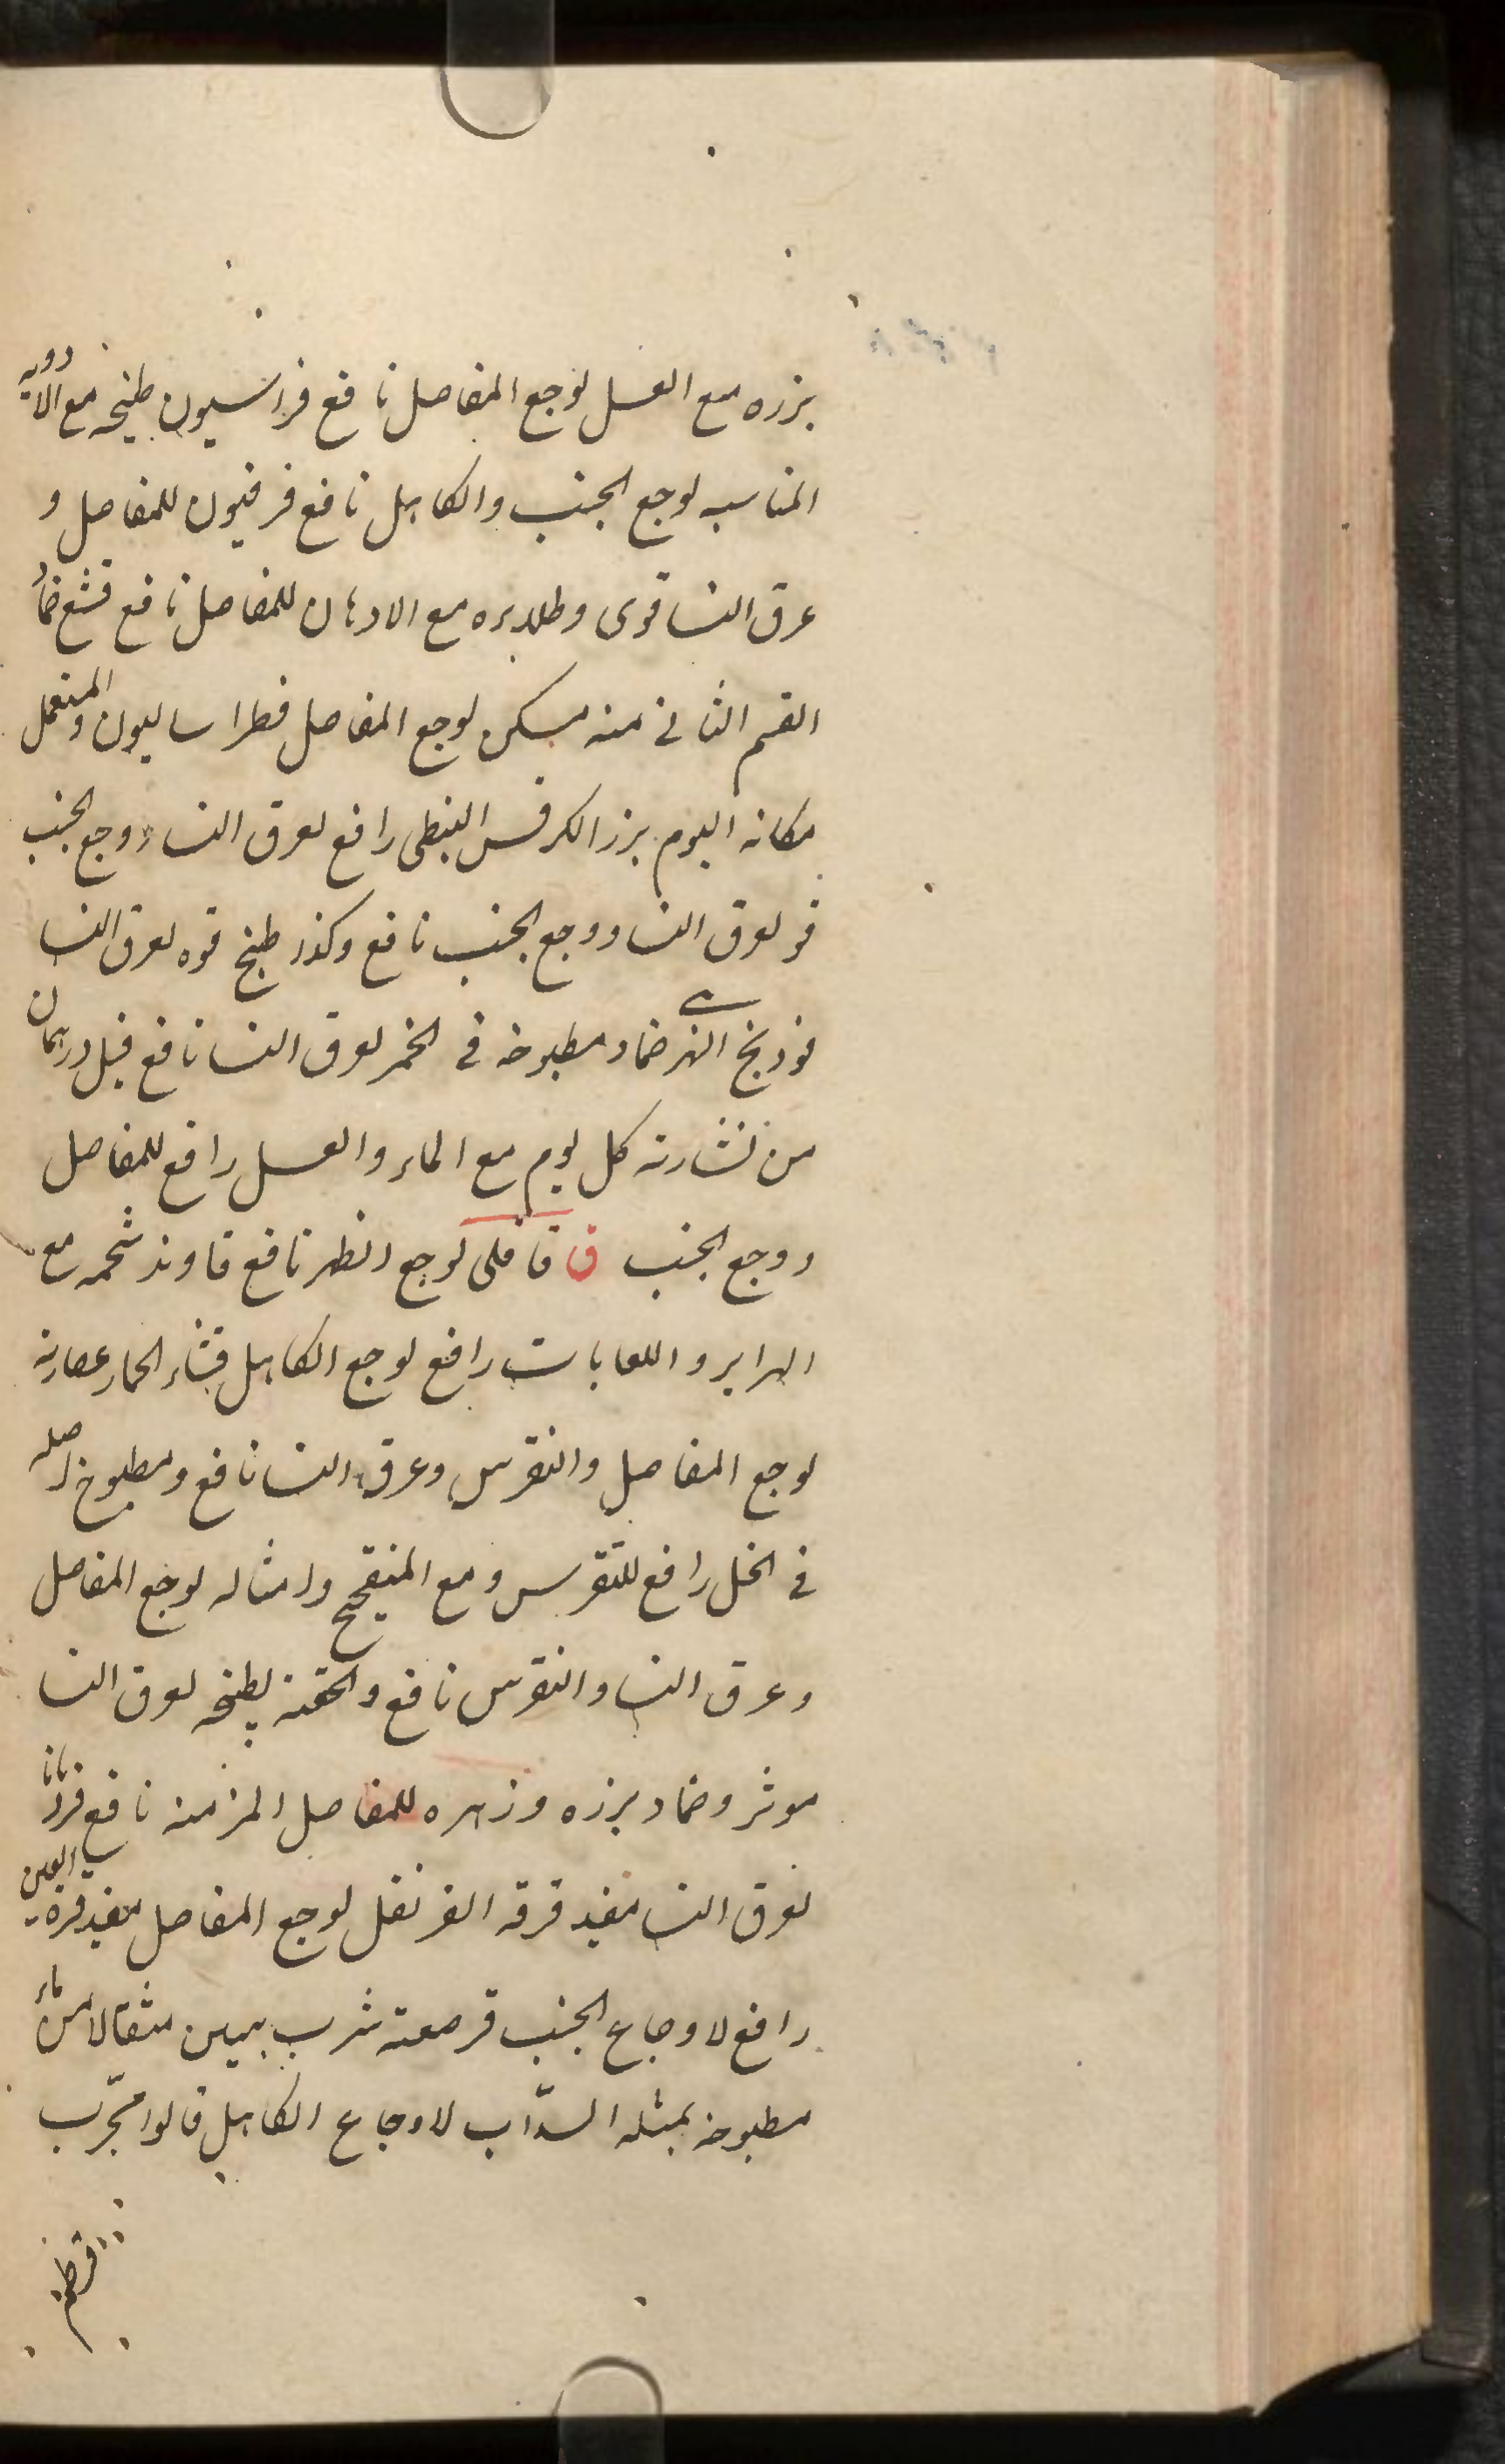 بزره مع العسل لوجع المفاصل نافع فراسيون طبخه مع الادويه
المناسبه لوجع الجنب والكاهل نافع فرفيون للمفاصل و
عرق النسا قوى وطلا بره مع الادهان للمفاصل نافع فشغ ضماد
القسم الثانى منه مسكن لوجع المفاصل فطراساليون والمستعمل
مكانه اليوم بزر الكرفس النبطى رافع لعرق النساء ووجع الجنب
فو لعرق النسا ووجع الجنب نافع وكذا طبخ فوه لعرق النسا
فوذنج النهرى ضماد مطبوخه فى الخمر لعرق النسا نافع فيل درهمان
من نشارته كل يوم مع الماء والعسل رافع للمفاصل
ووجع الجنب ق قاقلى لوجع الظهر نافع قاوند شحمه مع
الهراير واللعابات رافع لوجع الكاهل قثاء الحمار عصارته
لوجع المفاصل والنقرس وعرق النسا نافع ومطبوخ اصله
فى الخل رافع للنقرس ومع الميفختج وامثاله لوجع المفاصل
وعرق النسا والنقرس نافع والحقنه بطبخه لعرق النسا
موثر وضماد بزره وزهره للمفاصل المزمنه نافع قردمانا
لعرق النسا مفيد قرفه القرنفل لوجع المفاصل مفيد قرة العين
رافع لاوجاع الجنب قرصعنه شرب ستين مثقالا من ماء
مطبوخه بمثله السذاب لاوجاع الكاهل قالوا مجرّب
قرطم